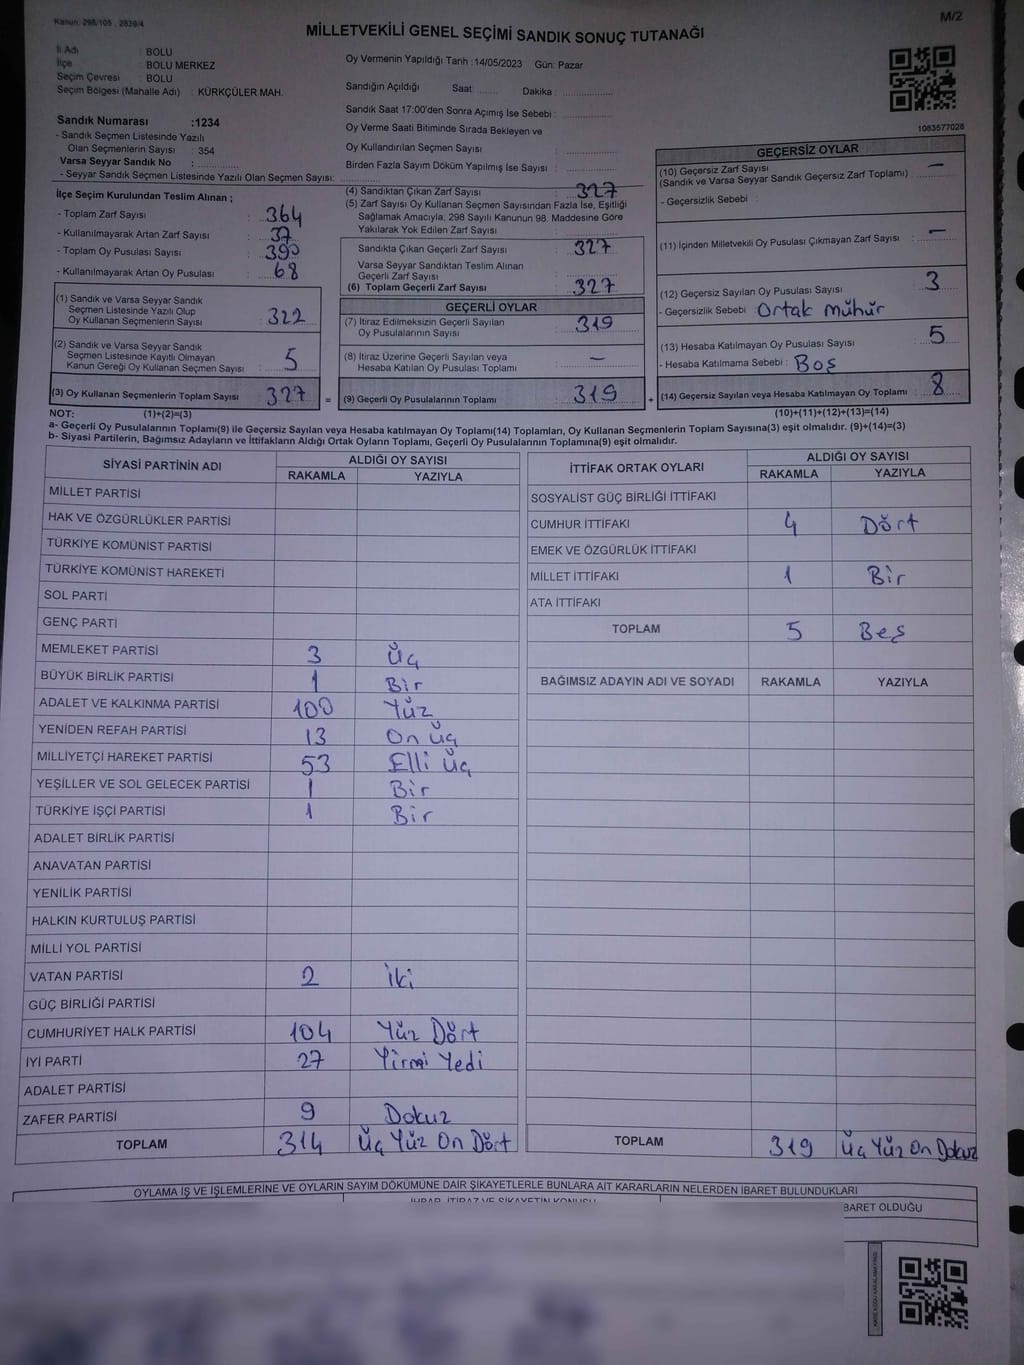 Kanun: 298/105 , 2839/4
M/2
MİLLETVEKİLİ GENEL SEÇİMİ SANDIK SONUÇ TUTANAĞI
İl Adı : BOLU
İlçe : BOLU MERKEZ
Seçim Çevresi : BOLU
Seçim Bölgesi (Mahalle Adı) : KÜRKÇÜLER MAH.
Sandık Numarası :1234
- Sandık Seçmen Listesinde Yazılı
Olan Seçmenlerin Sayısı : 354
Varsa Seyyar Sandık No :
- Seyyar Sandık Seçmen Listesinde Yazılı Olan Seçmen Sayısı:
Oy Vermenin Yapıldığı Tarih :14/05/2023 Gün: Pazar
Sandığın Açıldığı Saat: Dakika :
Sandık Saat 17:00'den Sonra Açımış İse Sebebi :
Oy Verme Saati Bitiminde Sırada Bekleyen ve
Oy Kullandırılan Seçmen Sayısı :
Birden Fazla Sayım Döküm Yapılmış İse Sayısı :
1083577028
İlçe Seçim Kurulundan Teslim Alınan ;
- Toplam Zarf Sayısı : 364
- Kullanılmayarak Artan Zarf Sayısı : 37
- Toplam Oy Pusulası Sayısı : 390
- Kullanılmayarak Artan Oy Pusulası : 68
(1) Sandık ve Varsa Seyyar Sandık
Seçmen Listesinde Yazılı Olup
Oy Kullanan Seçmenlerin Sayısı : 322
(2) Sandık ve Varsa Seyyar Sandık
Seçmen Listesinde Kayıtlı Olmayan
Kanun Gereği Oy Kullanan Seçmen Sayısı : 5
(3) Oy Kullanan Seçmenlerin Toplam Sayısı 327 =
(4) Sandıktan Çıkan Zarf Sayısı : 327
(5) Zarf Sayısı Oy Kullanan Seçmen Sayısından Fazla İse, Eşitliği
Sağlamak Amacıyla; 298 Sayılı Kanunun 98. Maddesine Göre
Yakılarak Yok Edilen Zarf Sayısı :
Sandıkta Çıkan Geçerli Zarf Sayısı : 327
Varsa Seyyar Sandıktan Teslim Alınan
Geçerli Zarf Sayısı :
(6) Toplam Geçerli Zarf Sayısı : 327
GEÇERLİ OYLAR
(7) İtiraz Edilmeksizin Geçerli Sayılan
Oy Pusulalarının Sayısı : 319
(8) İtiraz Üzerine Geçerli Sayılan veya
Hesaba Katılan Oy Pusulası Toplamı : —
(9) Geçerli Oy Pusulalarının Toplamı : 319 +
GEÇERSİZ OYLAR
(10) Geçersiz Zarf Sayısı : —
(Sandık ve Varsa Seyyar Sandık Geçersiz Zarf Toplamı)
- Geçersizlik Sebebi :
(11) İçinden Milletvekili Oy Pusulası Çıkmayan Zarf Sayısı : —
(12) Geçersiz Sayılan Oy Pusulası Sayısı : 3
- Geçersizlik Sebebi : Ortak mühür
(13) Hesaba Katılmayan Oy Pusulası Sayısı : 5
- Hesaba Katılmama Sebebi : Boş
(14) Geçersiz Sayılan veya Hesaba Katılmayan Oy Toplamı : 8
NOT: (1)+(2)=(3)
(10)+(11)+(12)+(13)=(14)
a- Geçerli Oy Pusulalarının Toplamı(9) ile Geçersiz Sayılan veya Hesaba katılmayan Oy Toplamı(14) Toplamları, Oy Kullanan Seçmenlerin Toplam Sayısına(3) eşit olmalıdır. (9)+(14)=(3)
b- Siyasi Partilerin, Bağımsız Adayların ve İttifakların Aldığı Ortak Oyların Toplamı, Geçerli Oy Pusulalarının Toplamına(9) eşit olmalıdır.
SİYASİ PARTİNİN ADI
ALDIĞI OY SAYISI
RAKAMLA YAZIYLA
MİLLET PARTİSİ
HAK VE ÖZGÜRLÜKLER PARTİSİ
TÜRKİYE KOMÜNİST PARTİSİ
TÜRKİYE KOMÜNİST HAREKETİ
SOL PARTİ
GENÇ PARTİ
MEMLEKET PARTİSİ 3 Üç
BÜYÜK BİRLİK PARTİSİ 1 Bir
ADALET VE KALKINMA PARTİSİ 100 Yüz
YENİDEN REFAH PARTİSİ 13 On üç
MİLLİYETÇİ HAREKET PARTİSİ 53 Elli üç
YEŞİLLER VE SOL GELECEK PARTİSİ 1 Bir
TÜRKİYE İŞÇİ PARTİSİ 1 Bir
ADALET BİRLİK PARTİSİ
ANAVATAN PARTİSİ
YENİLİK PARTİSİ
HALKIN KURTULUŞ PARTİSİ
MİLLİ YOL PARTİSİ
VATAN PARTİSİ 2 İki
GÜÇ BİRLİĞİ PARTİSİ
CUMHURİYET HALK PARTİSİ 104 Yüz Dört
İYİ PARTİ 27 Yirmi Yedi
ADALET PARTİSİ
ZAFER PARTİSİ 9 Dokuz
TOPLAM 314 Üç Yüz On Dört
İTTİFAK ORTAK OYLARI
ALDIĞI OY SAYISI
RAKAMLA YAZIYLA
SOSYALİST GÜÇ BİRLİĞİ İTTİFAKI
CUMHUR İTTİFAKI 4 Dört
EMEK VE ÖZGÜRLÜK İTTİFAKI
MİLLET İTTİFAKI 1 Bir
ATA İTTİFAKI
TOPLAM 5 Beş
BAĞIMSIZ ADAYIN ADI VE SOYADI RAKAMLA YAZIYLA
TOPLAM 319 Üç Yüz On Dokuz
OYLAMA İŞ VE İŞLEMLERİNE VE OYLARIN SAYIM DÖKÜMÜNE DAİR ŞİKAYETLERLE BUNLARA AİT KARARLARIN NELERDEN İBARET BULUNDUKLARI
İHBAR, İTİRAZ VE ŞİKAYETİN KONUSU
BARET OLDUĞU